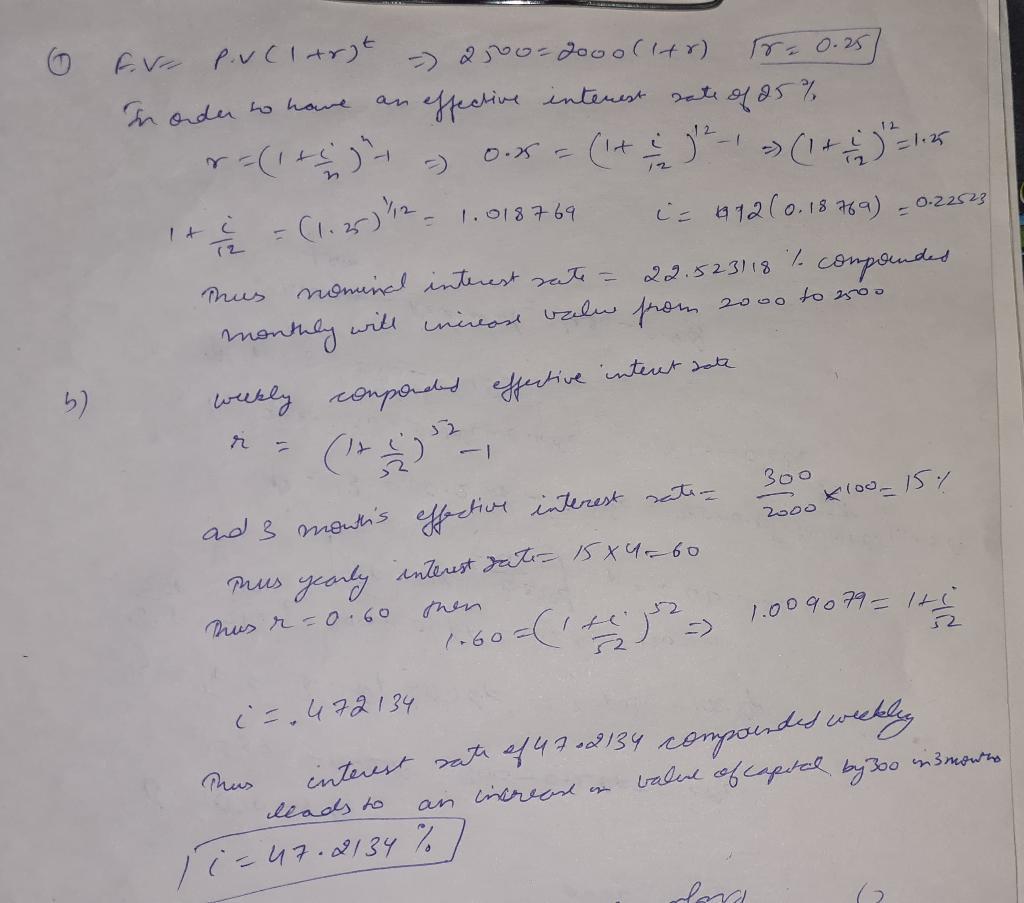 ① F.V = P.V (1+r)^t ⇒ 2500 = 2000 (1+r) r = 0.25
In order to have an effective interest rate of 25%
r = (1 + i/n)^n - 1 ⇒ 0.25 = (1 + i/12)^12 - 1 ⇒ (1 + i/12)^12 = 1.25
1 + i/12 = (1.25)^1/12 = 1.018769 i = 12 (0.18769) = 0.22523
Thus nominal interest rate = 22.523118 % compounded
monthly will increase value from 2000 to 2500
b) weekly compounded effective interest rate
r = (1 + i/52)^52 - 1
and 3 month's effective interest rate = 300/2000 × 100 = 15%
Thus yearly interest rate = 15 × 4 = 60
Thus r = 0.60 then 1.60 = (1 + i/52)^52 ⇒ 1.009079 = 1 + i/52
i = .472134
Thus interest rate of 47.2134 compounded weekly
leads to an increase in value of capital by 300 in 3 months
i = 47.2134 %